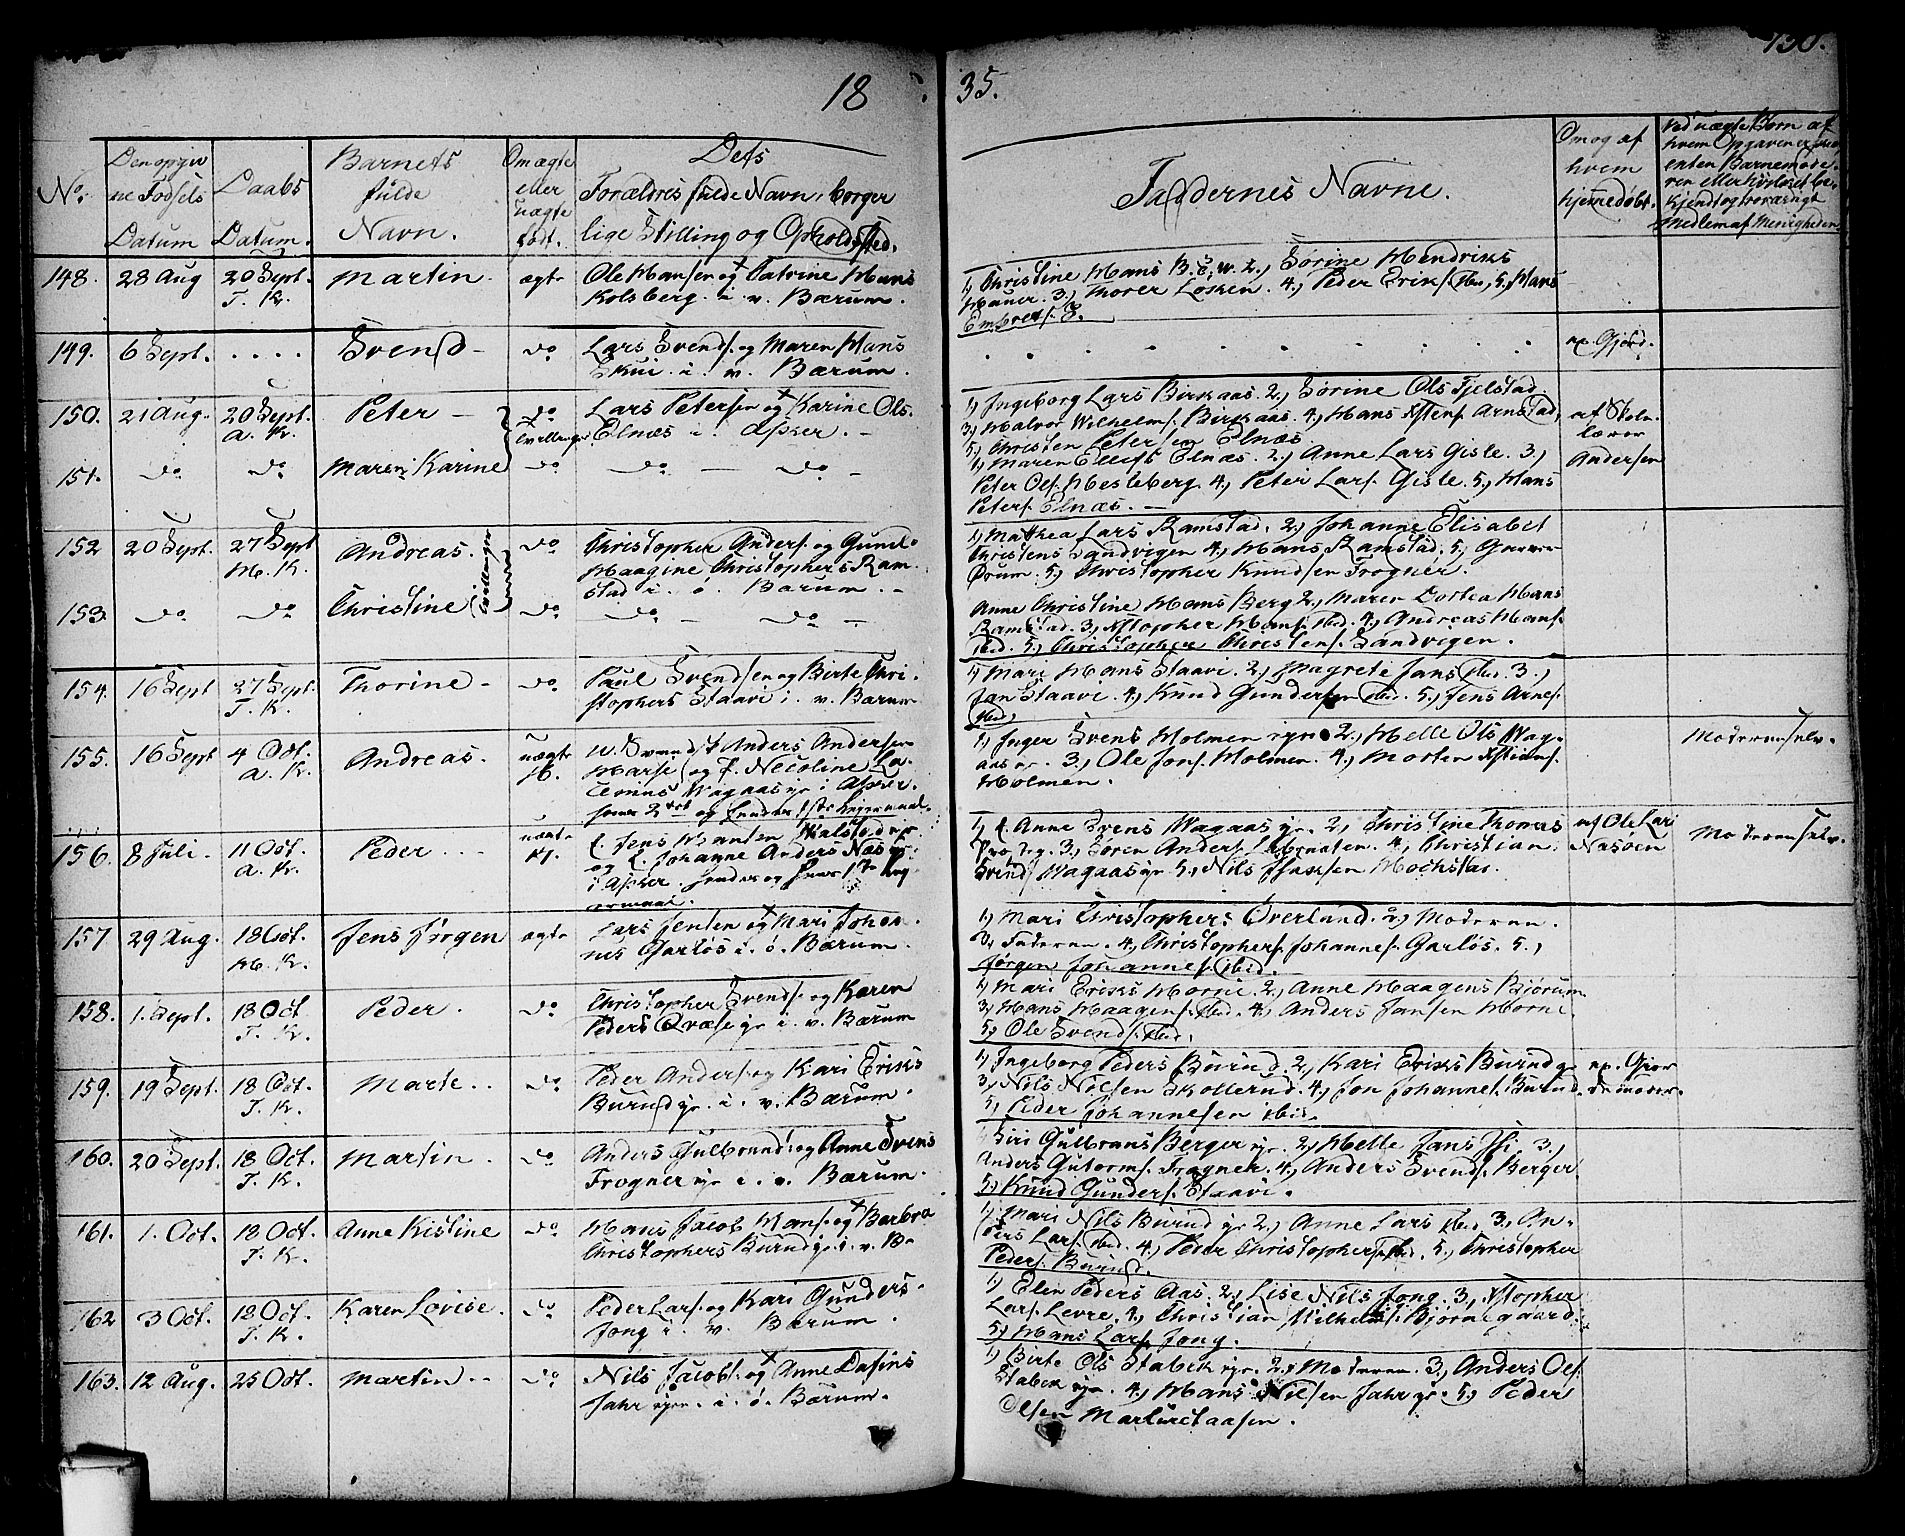 130.
18 35.
No.
Den opgiv
ne Fødsels
Datum
Daabs
Datum.
Barnets
fulde
Navn.
Om ægte
eller
uægte
født.
Dets
Forældres fulde Navn, borger
lige Stilling og Opholdsted.
Faddernes Navne.
Om og af
hvem
hjemedøbt.
Ved uægte Børn af
hvem Opgaven er
enten Barnemode
ren eller
kjendt og troværdigt
Medlem af Menigheden
148. 28 Aug 20 Sept. Martin. ægte Ole Hansen og Catrine Hans
T. K. Kolsberg. i. v. Bærum.
1, Christine Hans B. 2, Sørine Hendriks
Hauer. 3, Thorer Løkken. 4, Peder Eriks. ibid, 5, Hans
Embrets.
149. 6 Sept. . . . . Svend - do Lars Svends. og Maren Hans
Skui. i. v. Bærum.
np. Gjord.
150. 21 Aug. 20 Sept. Peter - do Lars Petersen og Karine Ols.
A. K. Tvillinger Elnæs i. Asker. -
1, Ingeborg Lars Birkaas. 2, Sørine Ols Fjelstad
3, Halvor Wilhelms. Birkaas. 4, Hans Arnstad,
5, Christen Petersen Elnæs
af Skole
lærer
Andersen
151. do do Maren Karine do do - do -
1, Maren Ellefs Elnæs. 2, Anne Lars Gisle. 3,
Peter Ols. Hesleberg. 4, Peter Lars. Gisle. 5, Hans
Peters. Elnæs. -
152 20 Sept. 27 Sept Andreas. do Christopher Anders. og Gunil
H. K. Tvillinger Haagine Christophers Ram
stad i. ø. Bærum. -
1, Mathea Lars Ramstad. 2, Johanne Elisabet
Christens Sandvigen 4, Hans Ramstad. 5,
Ørum. 5, Christopher Knudsen Frogner.
153. do do Christine do do - do -
Anne Christine Hans Berg 2, Maren Dortea Hans
Ramstad. 3, Xstopher Hans. ibid. 4, Andreas Hans.
ibid. 5, Christopher Christens. Sandvigen.
154. 16 Sept 27 Sept. Thorine - do Paul Svendsen og Birte Chri
T. K. stophers Staavi i. v. Bærum
1, Mari Hans Staavi. 2, Magrete Jans ibid. 3,
Jan Staavi. 4, Knud Gundersen ibid. 5, Jens Arnes.
ibid,
155. 16 Sept 4 Oct. Andreas. uægte Anders Andersen
A. K. og P. Nicoline La
Wagaas i Asker.
2det og hendes 1ste Leiermaal.
1, Inger Svens Holmen 2, Helle Ols Wag
aas 3, Ole Jons. Holmen. 4, Morten Xstians.
Holmen.
Moderen selv.
156. 8 Juli. 11 Oct. Peder. - uægte Jens Hansen
A. K. og P. Johanne Anders Næs
i Asker. hendes og hans 1ste Lej
ermaal.
1, P. Anne Svens Wagaas 2, Christine Thomas
3, Søren Anders. 4, Christian
Svends. Wagaas 5, Nils Isaksen Hochstad.
af Ole Lars
Nasøen
Moderen selv.
157 29 Aug. 18 Oct. Jens Jørgen ægte Lars Jensen og Mari Johan
H. K. nis Garløs i. ø. Bærum.
1, Mari Christophers Øverland. 2, Moderen.
3, Faderen. 4, Christophers. Johannes. Garløs. 5,
Jørgen Johannes. ibid.
158. 1. Sept. 18 Oct Peder. do Christopher Svends. og Karen
T. K. Peders i. v. Bærum
1, Mari Eriks Horni. 2, Anne Haagens Bjørum
3, Hans Haagens. ibid. 4, Anders Jansen Horni.
5, Ole Svends. ibid.
159. 19 Sept. 18 Oct. Marte. . do Peder Anders. og Kari Eriks
T. K. Burud i. v. Bærum.
1, Ingeborg Peders Burud. 2, Kari Eriks Burud
3, Nils Nilsen Skollerud. 4, Jon Johannes. Burud.
5, Peder Johannesen ibid.
np. Gjor
demoder.
160. 20 Sept. 18 Oct. Martin. do Anders Gulbrands. og Anne Svens
T. K. Frogner i. v. Bærum.
Siri Gulbrans Berger 2, Helle Jans 3,
Anders Gutorms. Frogner. 4, Anders Svends. Berger
5, Knud Gunders. Staavi.
161. 1. Oct. 18 Oct. Anne Kistine do Hans Jacob Hans. og Barbra
T. K. Christophers Burud i. v. B.
1, Mari Nils Burud 2, Anne Lars ibid. 3, An
ders Lars. ibid. 4, Peder Christophers. ibid. 5, Christopher
Peders. Burud.
162 3 Oct. 18 Oct. Karen Lovise. do Peder Lars. og Kari Gunders
T. K. Jong i. v. Bærum.
1, Elen Peders Aas. 2, Lise Nils Jong. 3, Xstopher
Lars. Levre. 4, Christian Wilhelms. Bjørnegaard.
5, Hans Lars. Jong.
163. 12 Aug. 25 Oct. Martin. . do Nils Jacobs. og Anne Dafins
Jahr i. ø. Bærum.
1, Birte Ols Stabek 2, Moderen. 3, Anders Ols.
Stabek 4, Hans Nilsen Jahr 5, Peder
Olsen